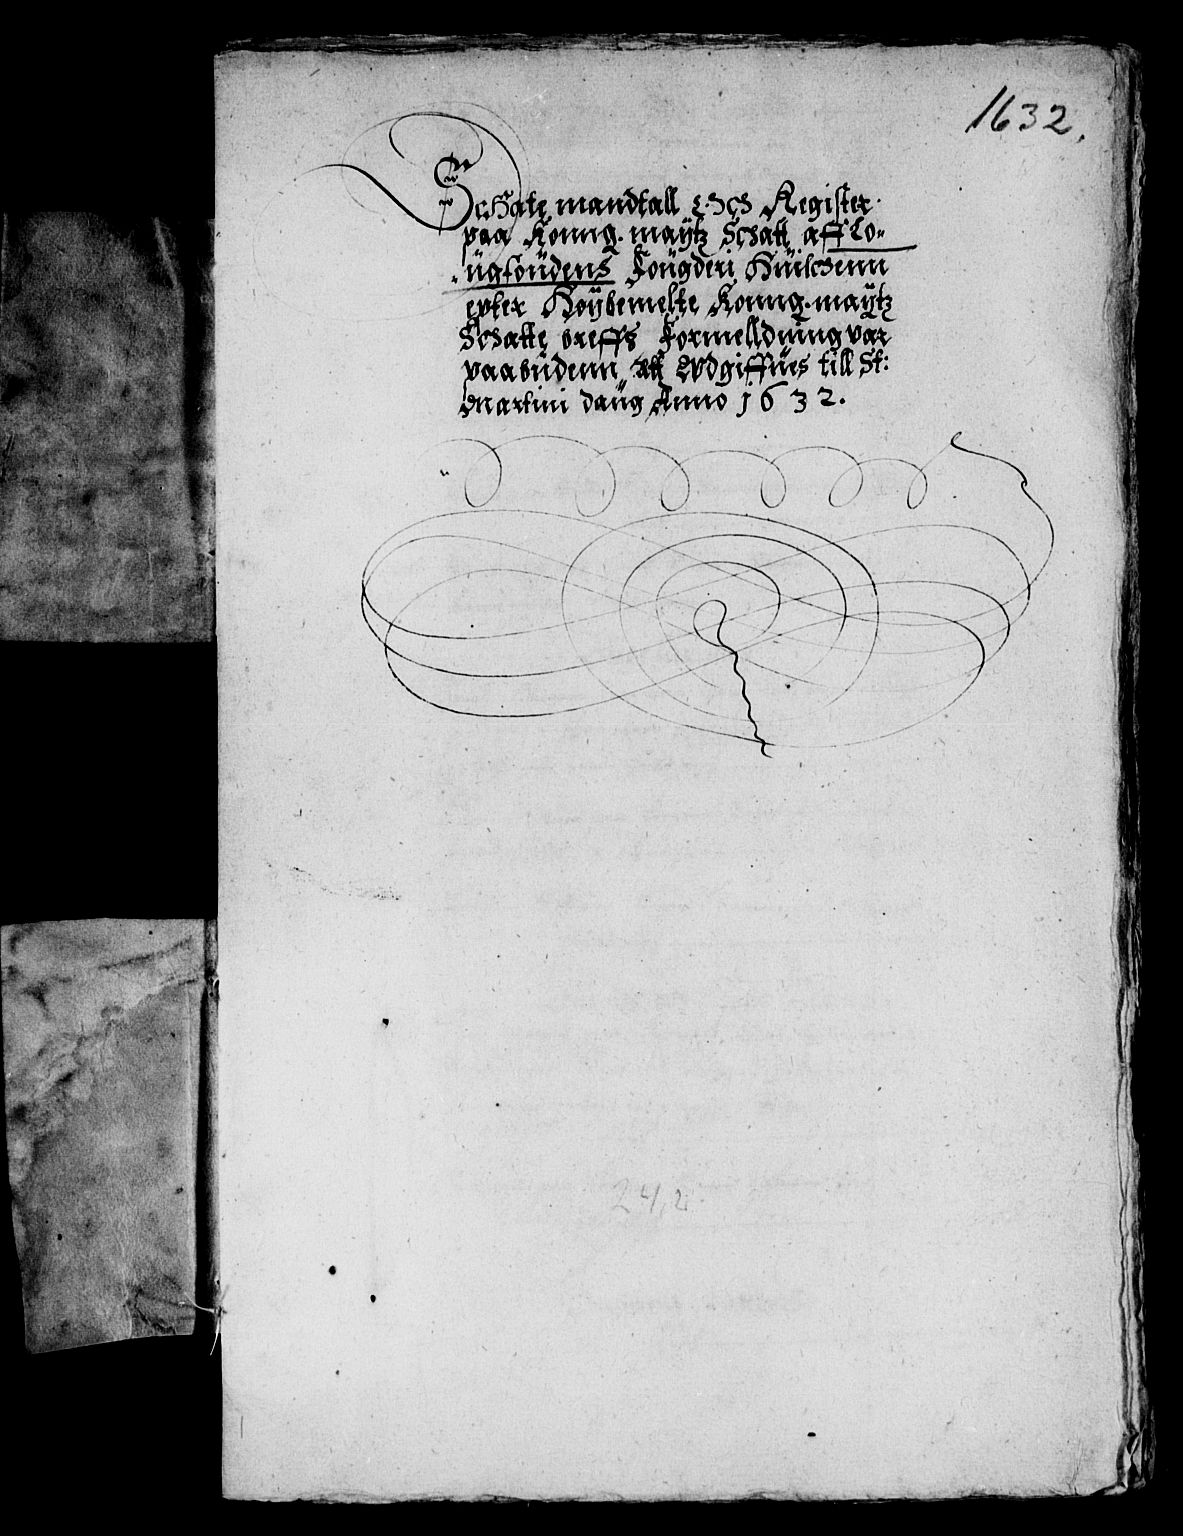 1632.
Schate mandtall Och Register
paa Konng. maÿtz Schatt aff Lo-
ügfoüdens Foügderi Huilchenn
epter Høÿbemelte Konng. maÿtz
Schatte breffs Formelldning var
paabüdenn att Wdgiffues till St:
Martini daüg Anno 1632.